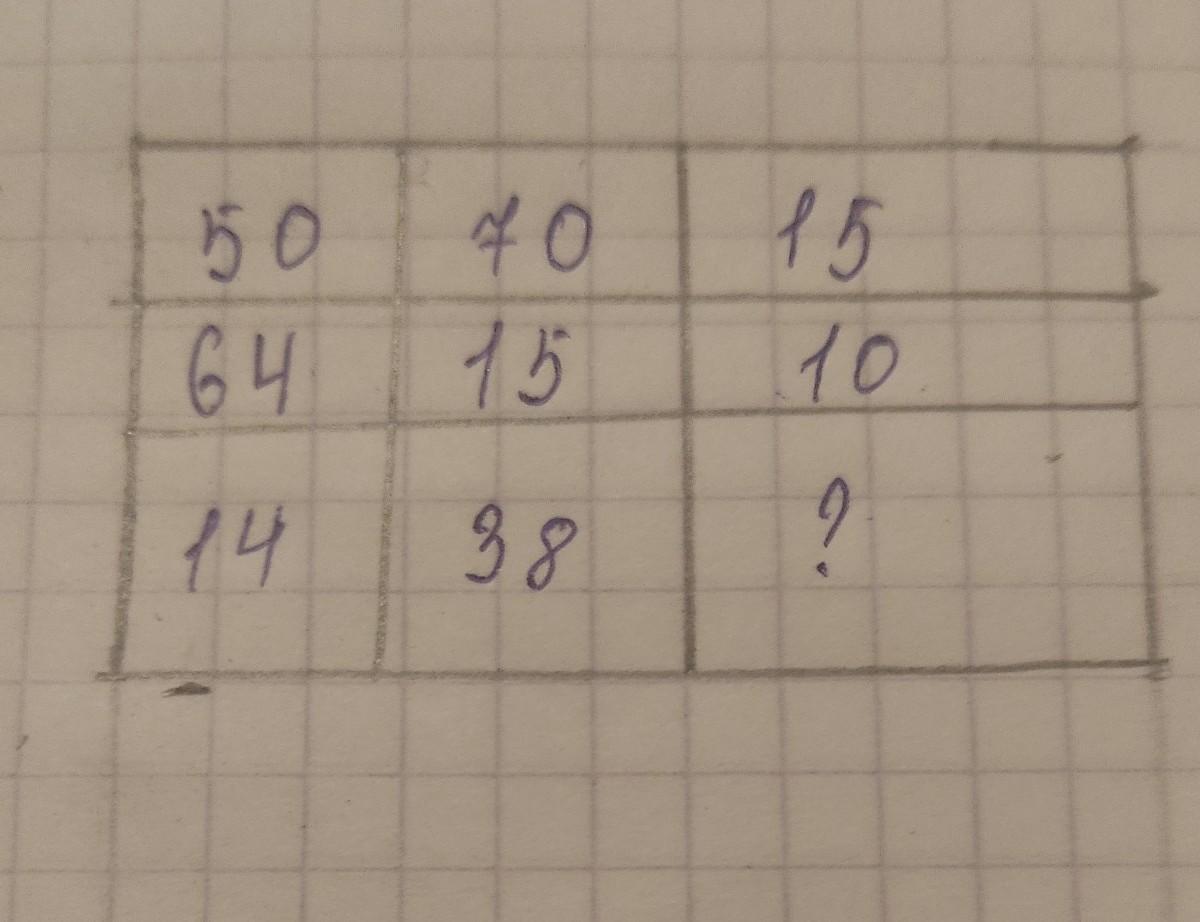 50 70 15
64 15 10
14 38 ?